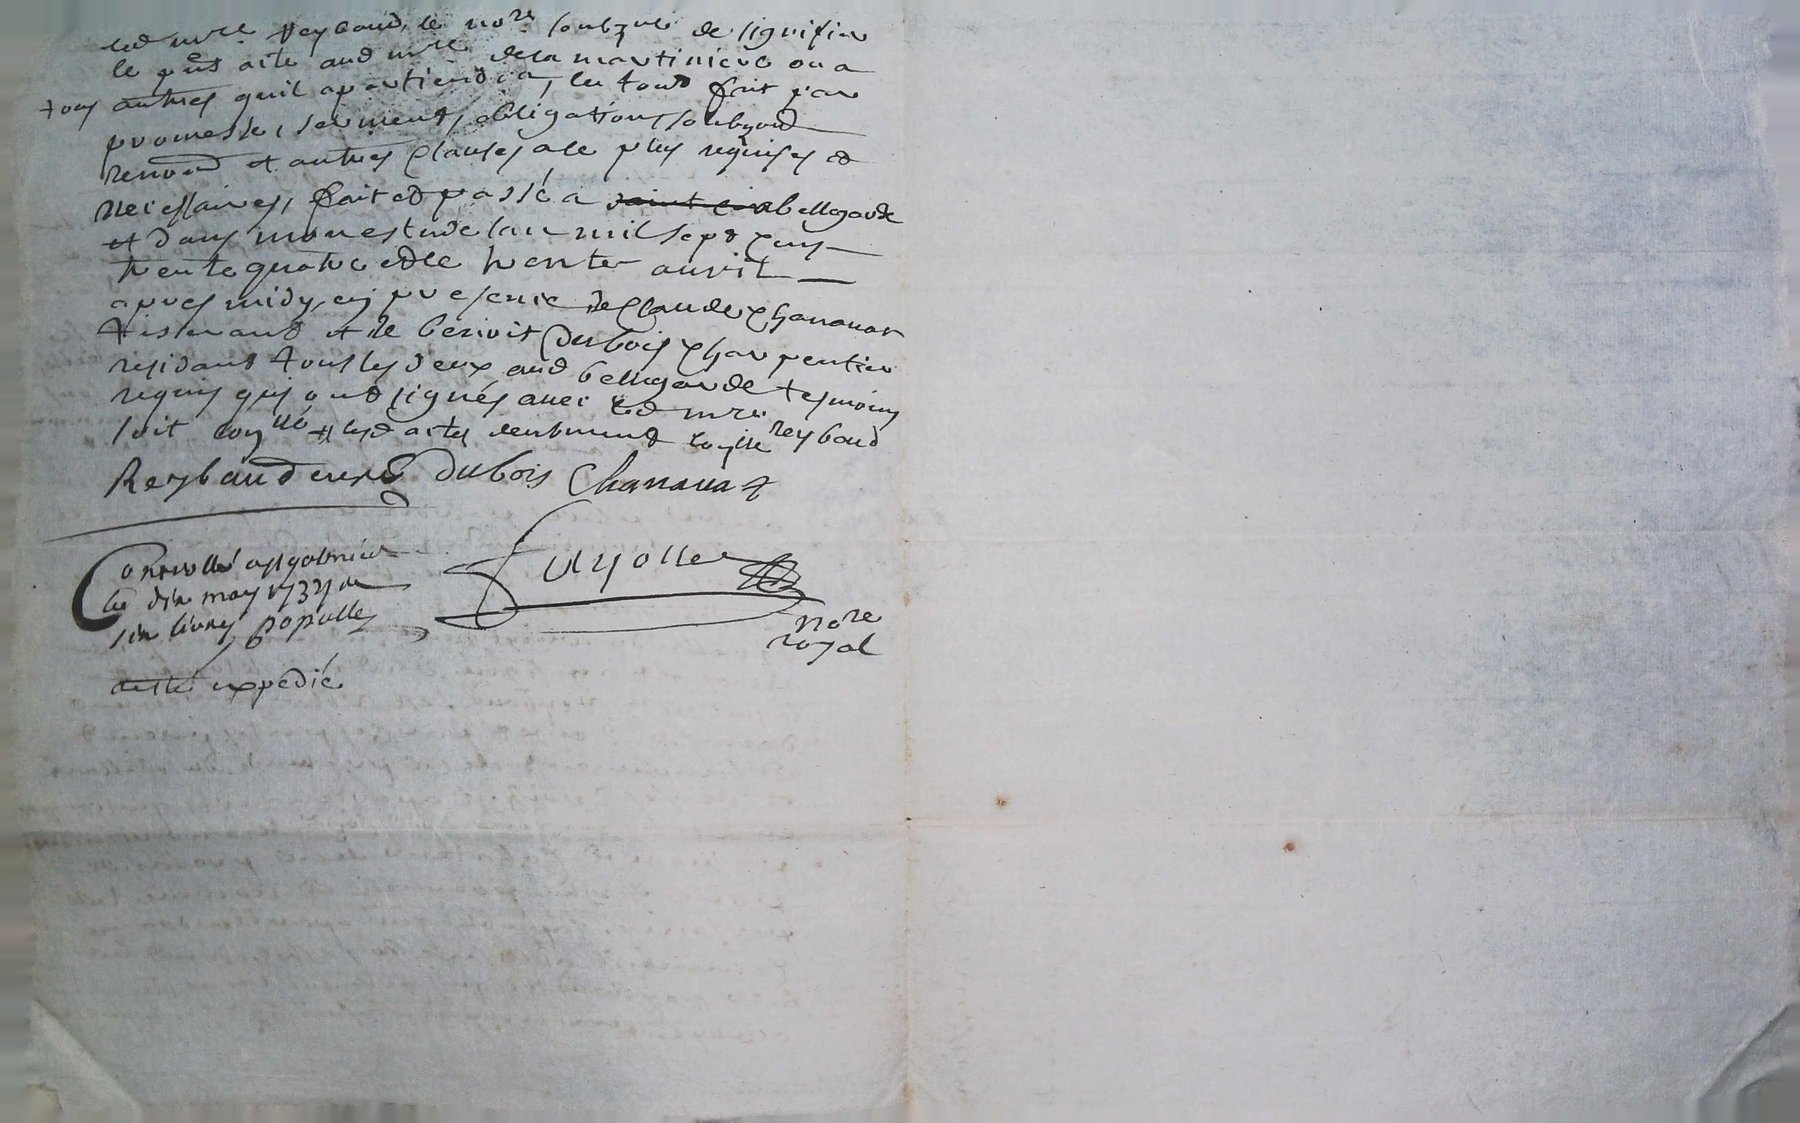 led mre Reybaud, le nore soubzné de signifier
le pnt acte aud mre dela martiniere ou a
tous autres quil apartiendra, le tout fait par
promesse, serment, obligation, soubzond
renond et autres clauses a ce plus requises et
necessaires, fait et passé a bellegarde
et dans mon estude lan mil sept cens
trente quatre et le trente avril
apres midy, en presence de Claude Chanavat
tisserand et de benoit Dubois charpentier
residant tous les deux aud bellegarde tesmoins
requis qui ont signés avec led mre reybaud
soit
Reybaud curé Dubois Chanavat
Controllé a st galmier
le dix may 1734 
six livres populle
nore
royal
esté expédié